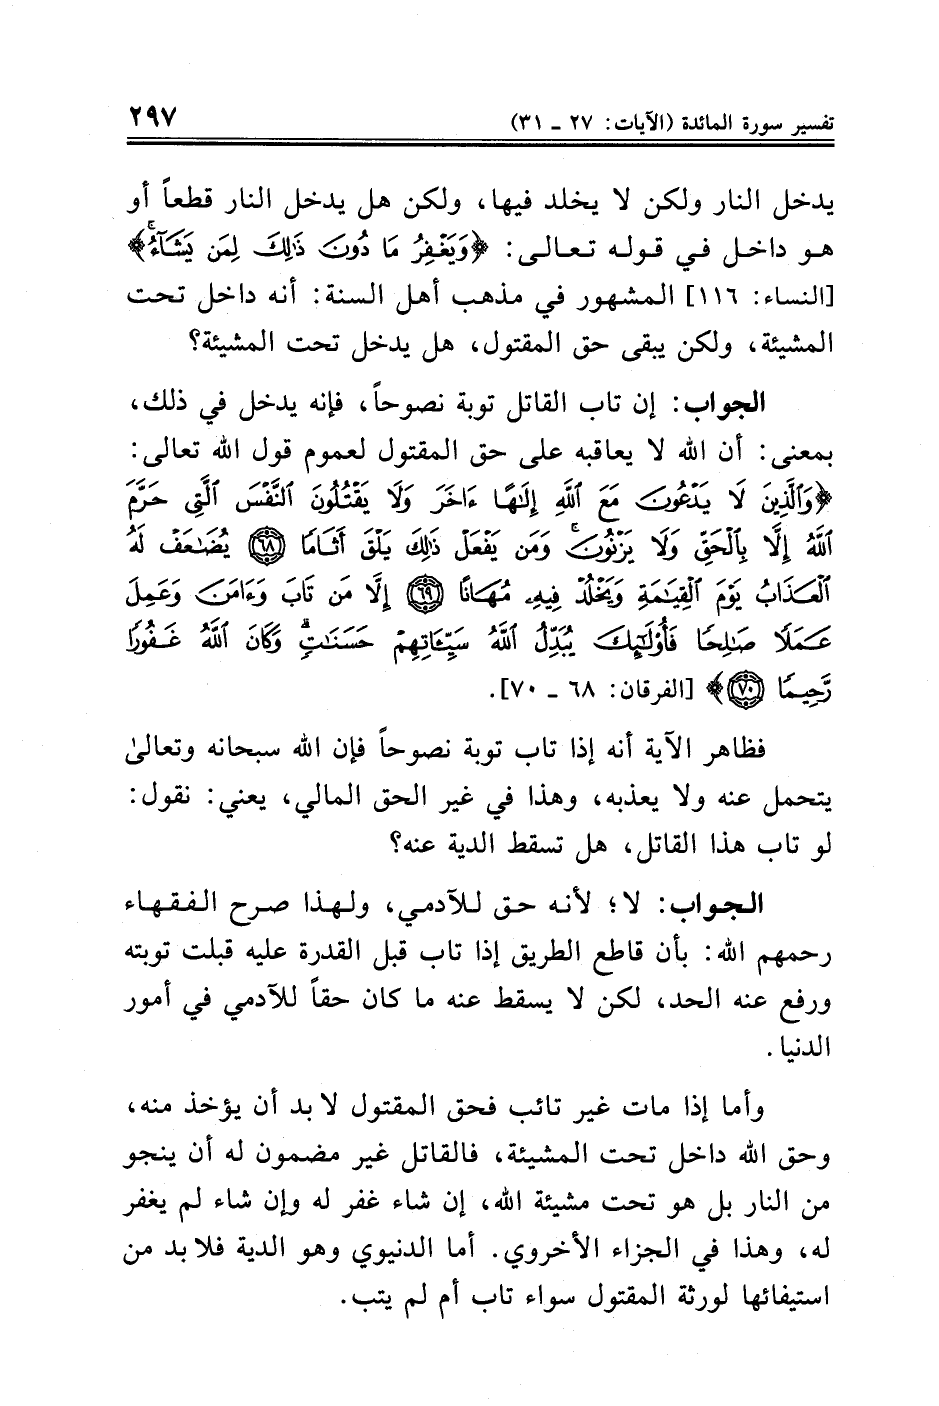 تفسير سورة المائدة (الآيات: ٢٧ ـ ٣١) ٢٩٧
يدخل النار ولكن لا يخلد فيها، ولكن هل يدخل النار قطعاً أو
هو داخل في قوله تعالى: ﴿وَيَغْفِرُ مَا دُونَ ذَٰلِكَ لِمَن يَشَآءُۚ﴾
[النساء: ١١٦] المشهور في مذهب أهل السنة: أنه داخل تحت
المشيئة، ولكن يبقى حق المقتول، هل يدخل تحت المشيئة؟
الجواب: إن تاب القاتل توبة نصوحاً، فإنه يدخل في ذلك،
بمعنى: أن الله لا يعاقبه على حق المقتول لعموم قول الله تعالى:
﴿وَٱلَّذِينَ لَا يَدْعُونَ مَعَ ٱللَّهِ إِلَٰهًا ءَاخَرَ وَلَا يَقْتُلُونَ ٱلنَّفْسَ ٱلَّتِى حَرَّمَ
ٱللَّهُ إِلَّا بِٱلْحَقِّ وَلَا يَزْنُونَۚ وَمَن يَفْعَلْ ذَٰلِكَ يَلْقَ أَثَامًا ٦٨ يُضَٰعَفْ لَهُ
ٱلْعَذَابُ يَوْمَ ٱلْقِيَٰمَةِ وَيَخْلُدْ فِيهِۦ مُهَانًا ٦٩ إِلَّا مَن تَابَ وَءَامَنَ وَعَمِلَ
عَمَلًا صَٰلِحًا فَأُو۟لَٰٓئِكَ يُبَدِّلُ ٱللَّهُ سَيِّـَٔاتِهِمْ حَسَنَٰتٍۗ وَكَانَ ٱللَّهُ غَفُورًا
رَّحِيمًا ٧٠﴾ [الفرقان: ٦٨ ـ ٧٠].
فظاهر الآية أنه إذا تاب توبة نصوحاً فإن الله سبحانه وتعالىٰ
يتحمل عنه ولا يعذبه، وهذا في غير الحق المالي، يعني: نقول:
لو تاب هذا القاتل، هل تسقط الدية عنه؟
الجواب: لا؛ لأنه حق للآدمي، ولهذا صرح الفقهاء
رحمهم الله: بأن قاطع الطريق إذا تاب قبل القدرة عليه قبلت توبته
ورفع عنه الحد، لكن لا يسقط عنه ما كان حقاً للآدمي في أمور
الدنيا.
وأما إذا مات غير تائب فحق المقتول لا بد أن يؤخذ منه،
وحق الله داخل تحت المشيئة، فالقاتل غير مضمون له أن ينجو
من النار بل هو تحت مشيئة الله، إن شاء غفر له وإن شاء لم يغفر
له، وهذا في الجزاء الأخروي. أما الدنيوي وهو الدية فلا بد من
استيفائها لورثة المقتول سواء تاب أم لم يتب.